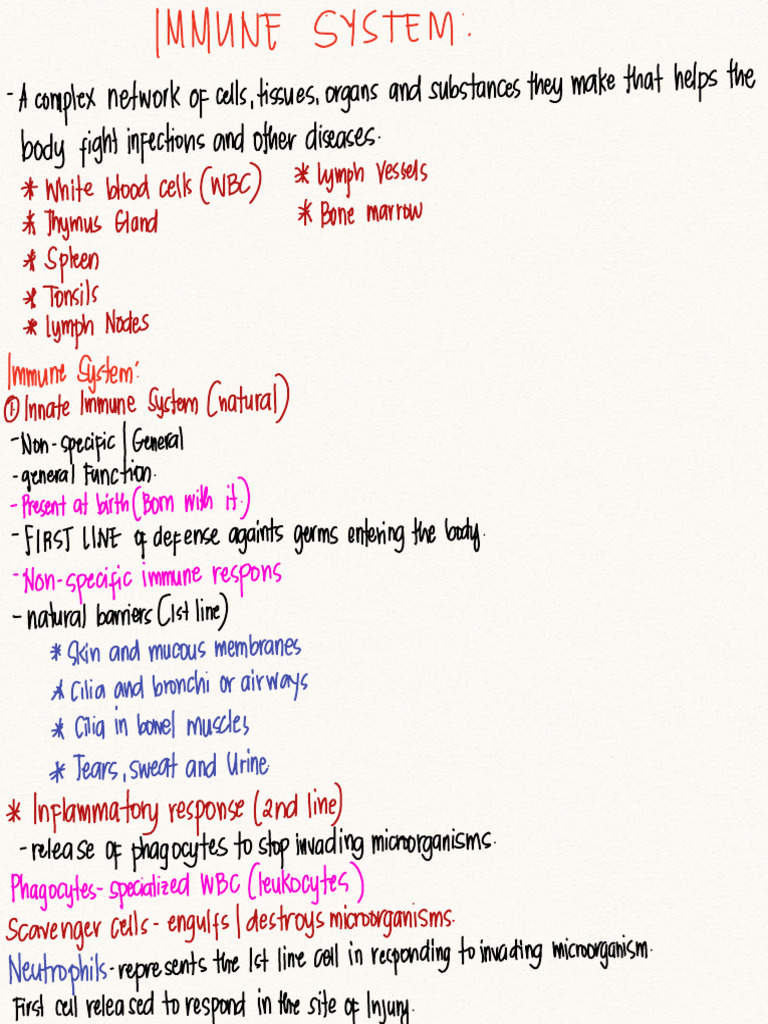 IMMUNE SYSTEM:
- A complex network of cells, tissues, organs and substances they make that helps the
body fight infections and other diseases.
* White blood cells (WBC) * Lymph Vessels
* Thymus Gland * Bone marrow
* Spleen
* Tonsils
* Lymph Nodes
Immune System:
① Innate Immune System (natural)
- Non-specific | General
- general Function.
- Present at birth (Born with it.)
- FIRST LINE of defense againts germs entering the body.
- Non-specific immune respons
- natural barriers (1st line)
* Skin and mucous membranes
* Cilia and bronchi or airways
* Cilia in bowel muscles
* Tears, sweat and Urine
* Inflammatory response (2nd line)
- release of phagocytes to stop invading microorganisms.
Phagocytes - specialized WBC (leukocytes)
Scavenger cells - engulfs | destroys microorganisms.
Neutrophils - represents the 1st line cell in responding to invading microorganism.
First cell released to respond in the site of Injury.